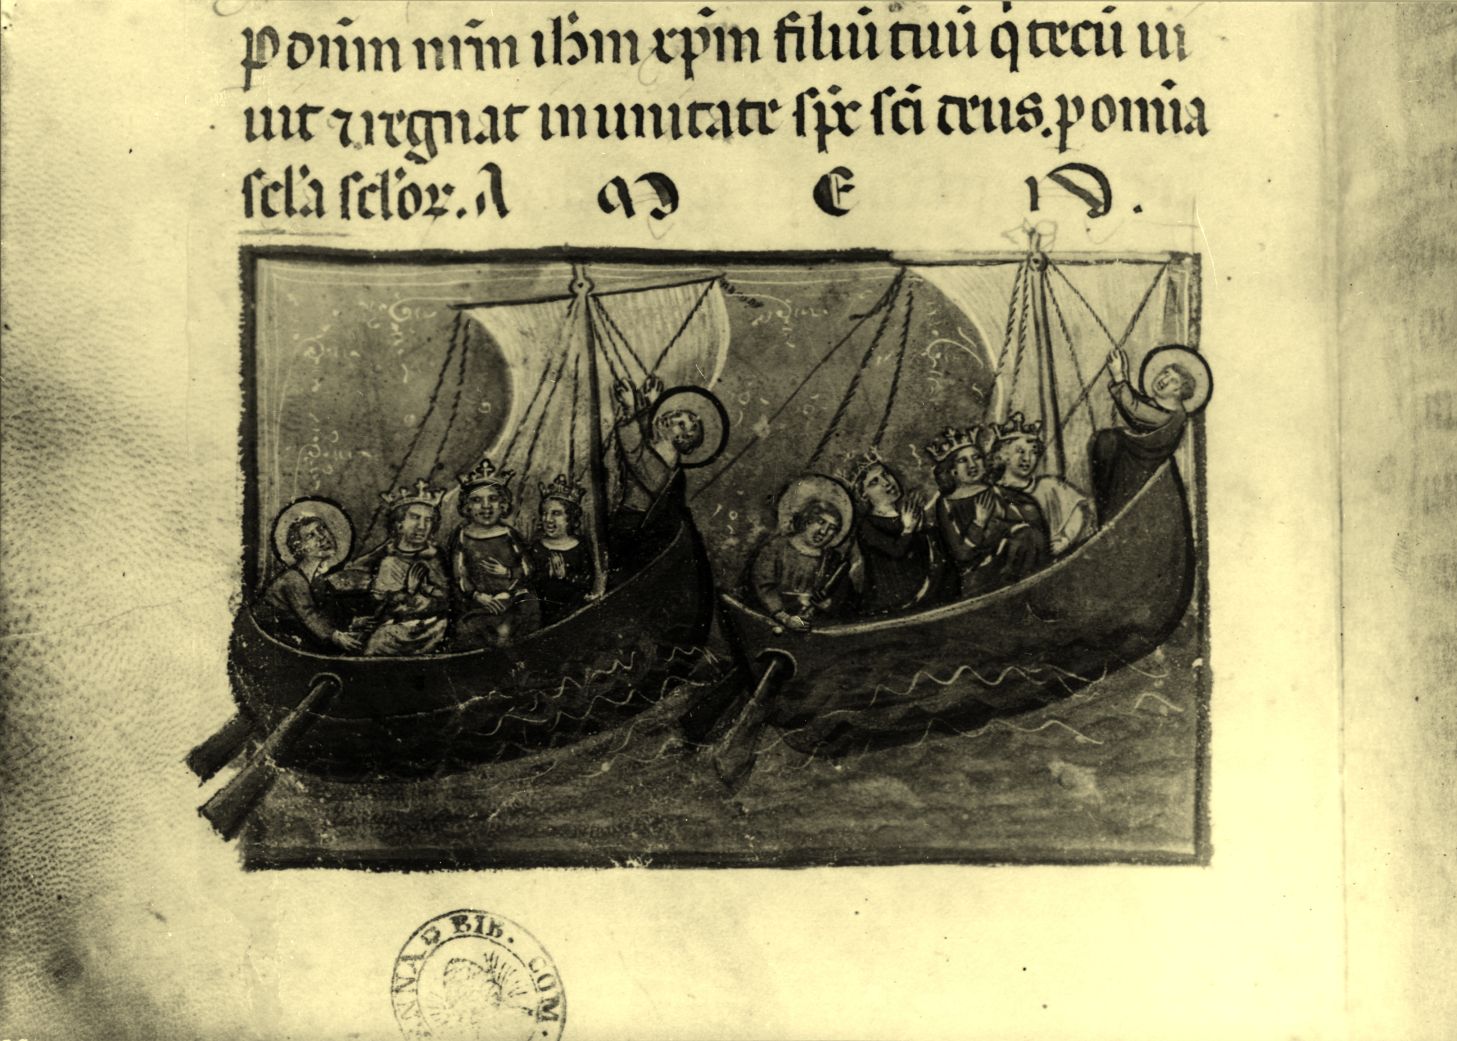 p dnm nrm ihm xpm filiu tuu q tecu ui
uit ⁊ regnat in unitate sps sci deus. p omia
scla sclor. A M E N.
NNA BIB. COM.